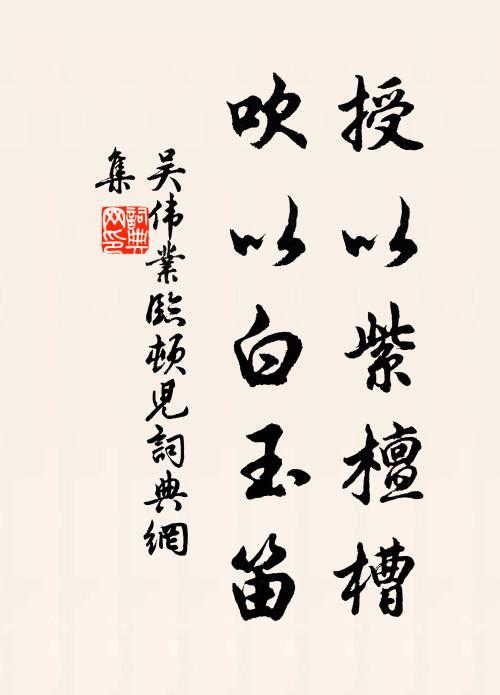 授以紫檀槽
吹以白玉笛
吴伟業臨頓児詞典網
集
詞典
网印